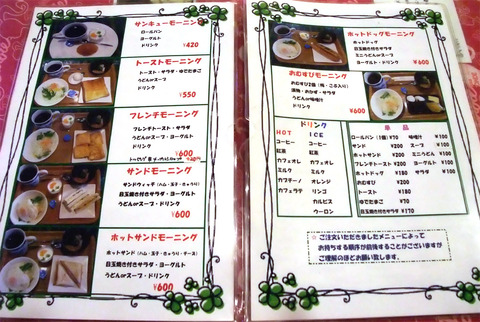 サンキューモーニング
ロールパン
ヨーグルト
ドリンク
¥420
トーストモーニング
トースト・サラダ・ゆでたまご
うどんorスープ
ドリンク
¥550
フレンチモーニング
フレンチトースト・サラダ
うどんorスープ・ヨーグルト
ドリンク
¥600
サンドモーニング
サンドウィッチ(ハム・玉子・きゅうり)
目玉焼き付きサラダ・ヨーグルト
うどんorスープ・ドリンク
¥600
ホットサンドモーニング
ホットサンド(ハム・玉子・きゅうり・チーズ)
目玉焼き付きサラダ・ヨーグルト
うどんorスープ・ドリンク
¥600
ホットドッグモーニング
ホットドッグ
目玉焼き付きサラダ
ミニうどんorスープ
ヨーグルト・ドリンク
¥600
おむすびモーニング
おむすび2個(梅・こぶ入り)
漬物・おかず・サラダ
うどんor味噌汁
ドリンク
¥600
ドリンク
HOT ICE
コーヒー コーヒー
紅茶 紅茶
カフェオレ カフェオレ
ミルク ミルク
カプチーノ オレンジ
カフェラテ リンゴ
カルピス
ウーロン
単品
ロールパン(1個) ¥70 味噌汁 ¥100
サンド ¥200 スープ ¥100
ホットサンド ¥200 ミニうどん ¥100
フレンチトースト ¥200 ヨーグルト ¥100
ホットドッグ ¥180 サラダ ¥100
おむすび ¥200
トースト ¥180
ゆでたまご ¥50
目玉焼き付きサラダ ¥170
☆ ご注文いただきましたメニューによって
お待ちする順序が前後することがございますが
ご理解のほどお願い致します。